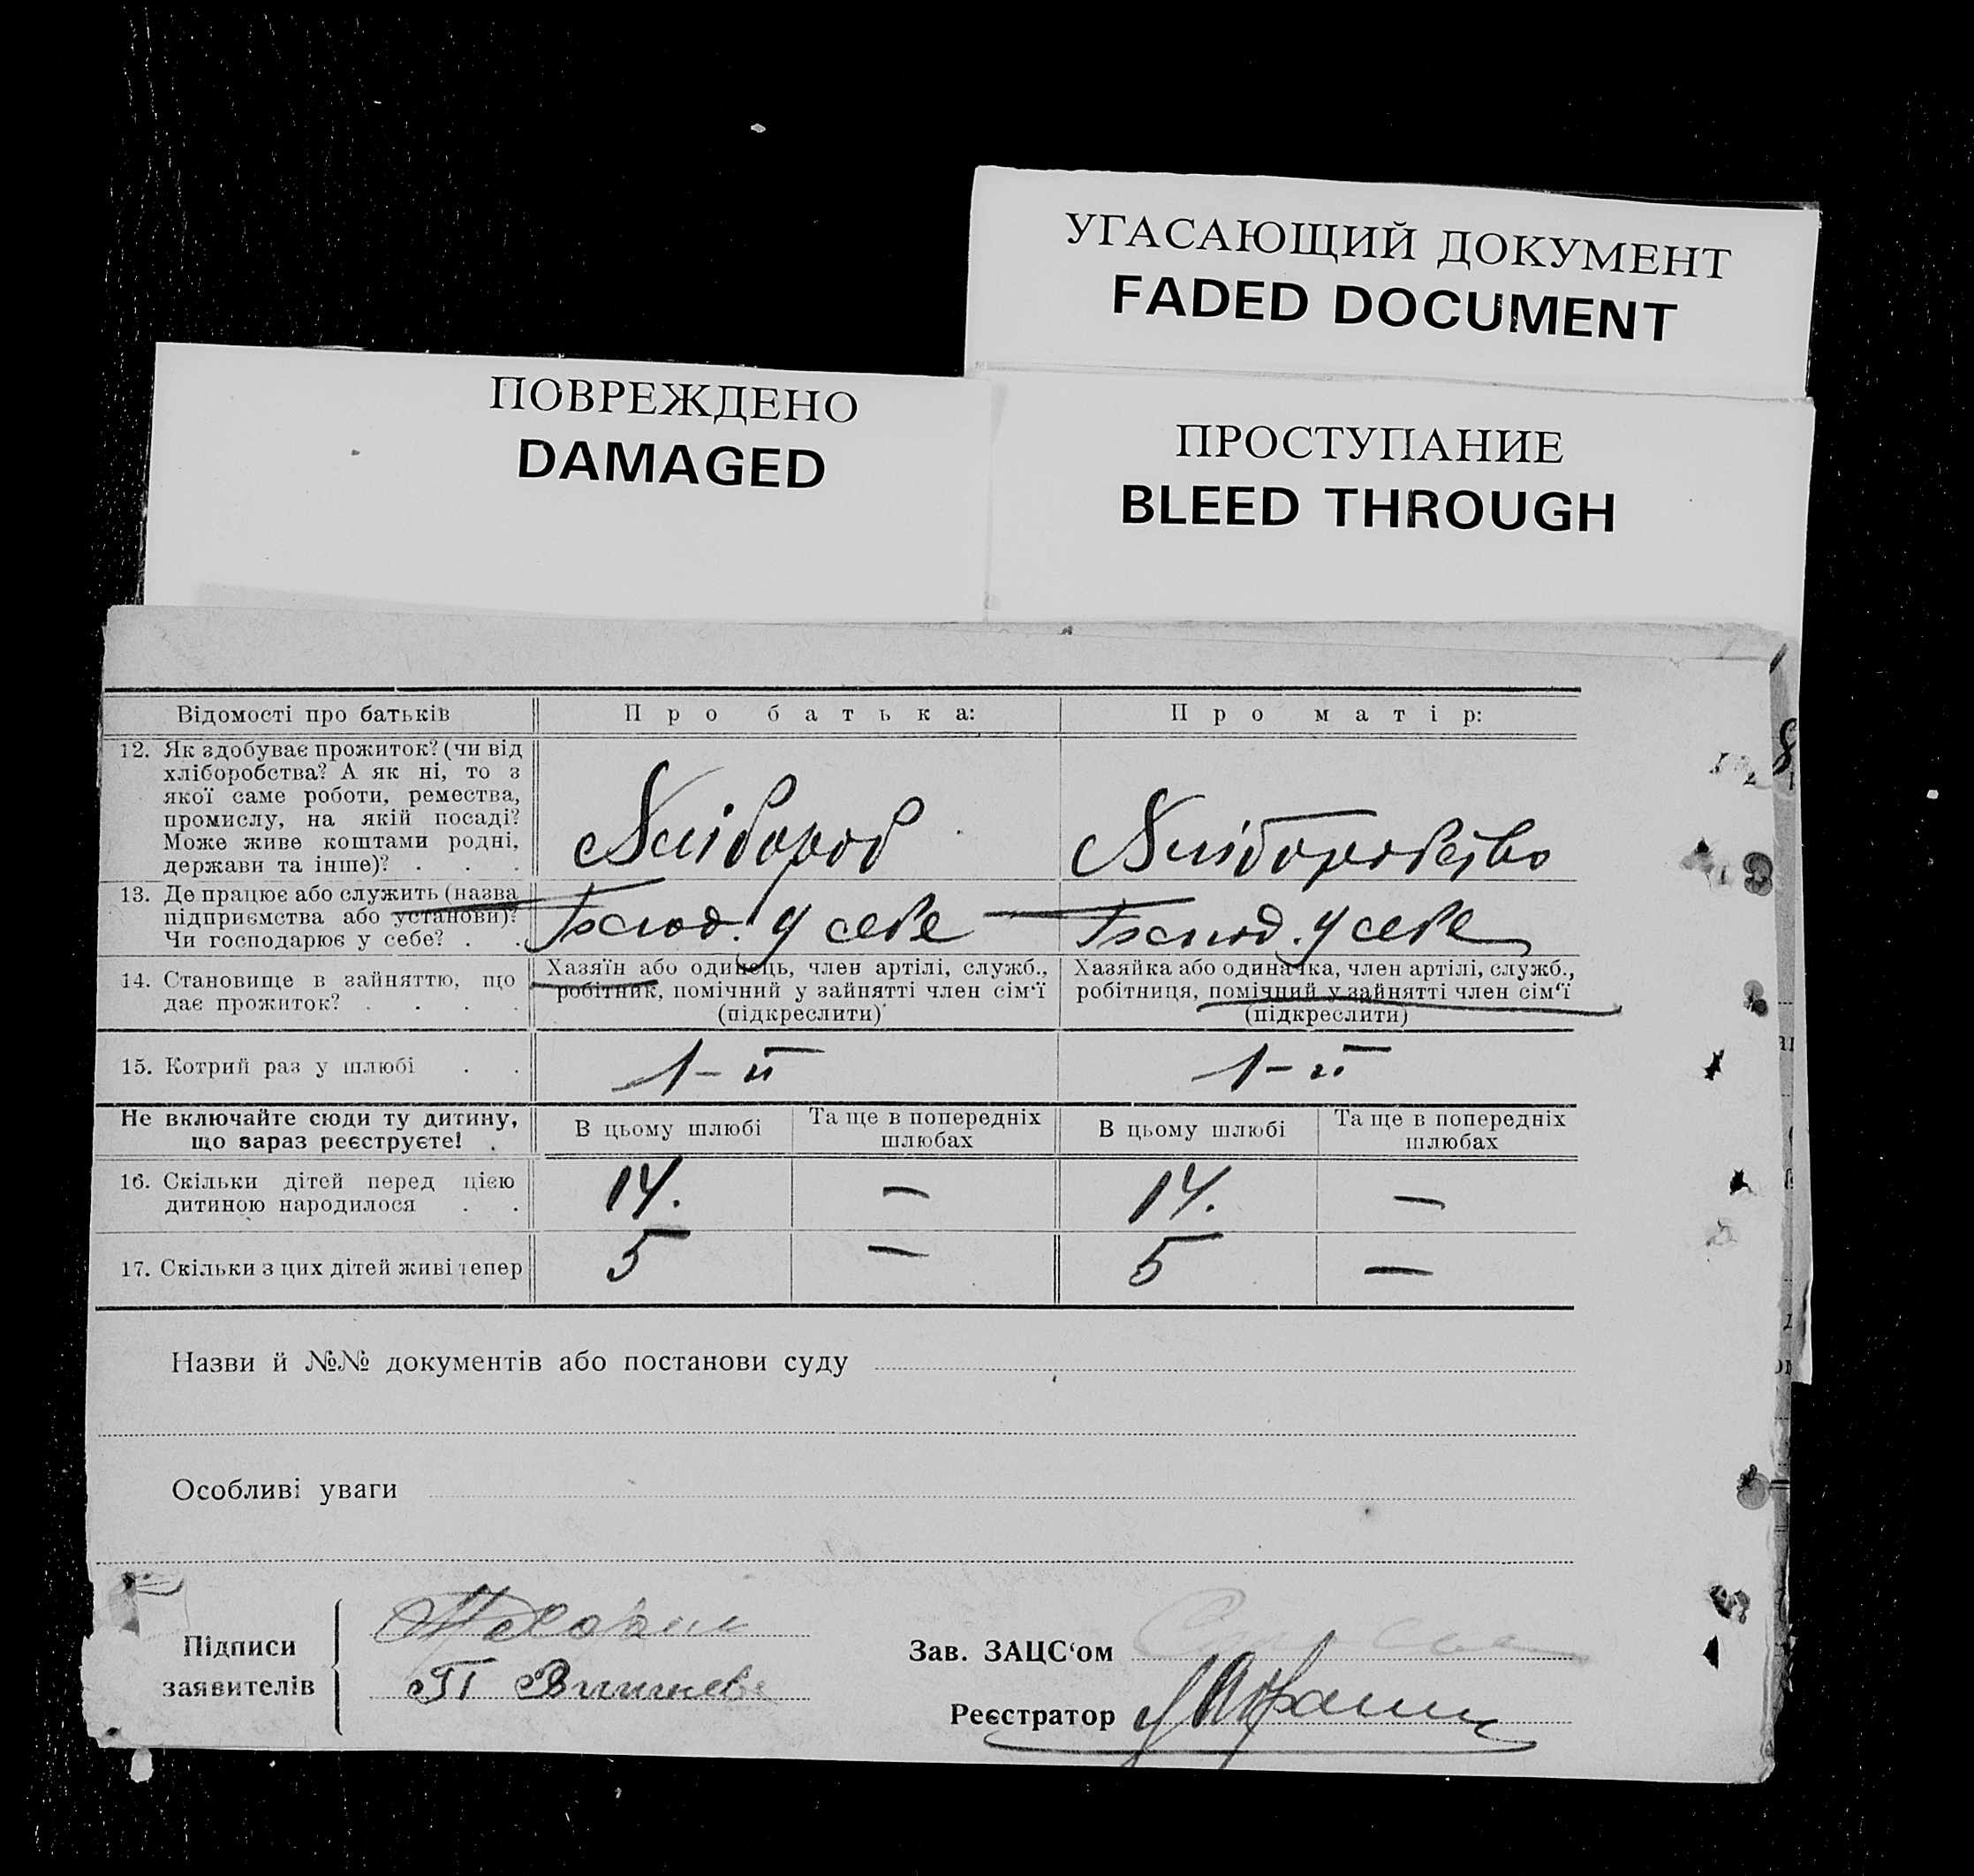 УГАСАЮЩИЙ ДОКУМЕНТ
FADED DOCUMENT
ПОВРЕЖДЕНО
DAMAGED
ПРОСТУПАНИЕ
BLEED THROUGH
Відомості про батьків Про батька: Про матір:
12. Як здобуває прожиток? (чи від
хліборобства? А як ні, то з
якої саме роботи, ремества,
промислу, на якій посаді?
Може живе коштами родні,
держави та інше)? . . .
Хлібороб Хліборобство
13. Де працює або служить (назва
підприємства або установи)?
Чи господарює у себе? . .
Господ. у себе Господ. у себе
14. Становище в зайняттю, що
дає прожиток? . . . .
Хазяїн або одинець, член артілі, служб.,
робітник, помічний у зайнятті член сім‘ї
(підкреслити)
Хазяйка або одиначка, член артілі, служб.,
робітниця, помічний у зайнятті член сім‘ї
(підкреслити)
15. Котрий раз у шлюбі . . 1-й 1-й
Не включайте сюди ту дитину,
що зараз реєструєте!
В цьому шлюбі
Та ще в попередніх
шлюбах
В цьому шлюбі
Та ще в попередніх
шлюбах
16. Скільки дітей перед цією
дитиною народилося . .
14. — 14. —
17. Скільки з цих дітей живі тепер 5 — 5 —
Назви й №№ документів або постанови суду
Особливі уваги
Підписи
заявителів
П
Зав. ЗАЦС‘ом
Реєстратор